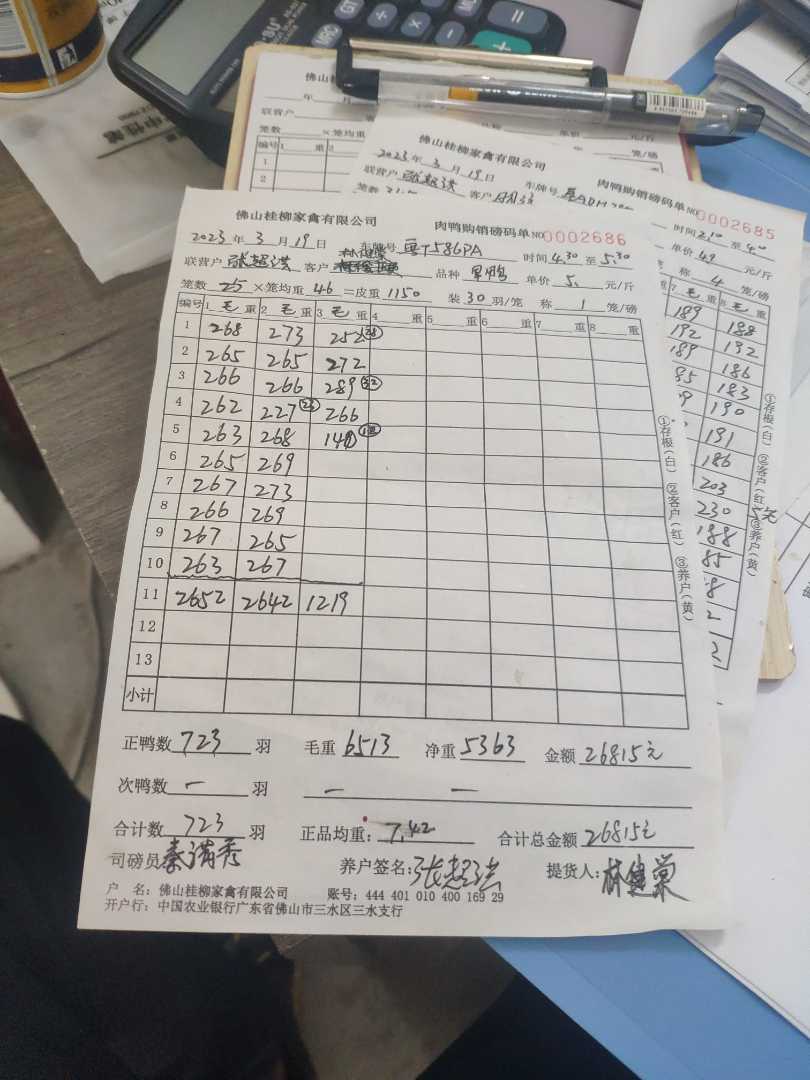 佛山桂柳家禽有限公司 肉鸭购销磅码单 NO 0002686
2023年3月19日 车牌号 粤T586PA 时间 4.30 至 5.30
联营户 张超洪 客户 林健棠 品种 单价 5. 元/斤
笼数 25 ×笼均重 46 =皮重 1150 装 30 羽/笼 称 1 笼/磅
编号 1 毛 重 2 毛 重 3 毛 重 4 重 5 重 6 重 7 重 8 重
1 268 273 252 28
2 265 265 272
3 266 266 289 32
4 262 227 266
5 263 268
6 265 269
7 267 273
8 266 269
9 267 265
10 263 267
11 2652 2642 1219
12
13
小计
正鸭数 723 羽 毛重 6513 净重 5363 金额 26815元
次鸭数 一 羽 — —
合计数 723 羽 正品均重: 7.42 合计总金额 26815元
司磅员 秦满秀 养户签名: 张超洪 提货人: 林健棠
户 名: 佛山桂柳家禽有限公司 账号: 444 401 010 400 169 29
开户行: 中国农业银行广东省佛山市三水区三水支行
①存根(白) ②客户(红) ③养户(黄)
佛山桂柳家禽有限公司 肉鸭购销磅码单 NO 0002685
2023年3月19日 车牌号 时间 2.10 至 4.0
联营户 张超洪 客户 单价 4.9 元/斤
笼数 称 4 笼/磅
7 毛 重 8 毛 重
189 188
192 192
189 186
85 183
190
191
186
203
230
188
85
①存根(白) ②客户(红) ③养户(黄)
5元
佛山桂柳家禽有限公司
年 月
联营户
笼数 ×笼均重
编号 1 重 2
1
2
元/斤
笼/磅
中性笔
GT
MRC